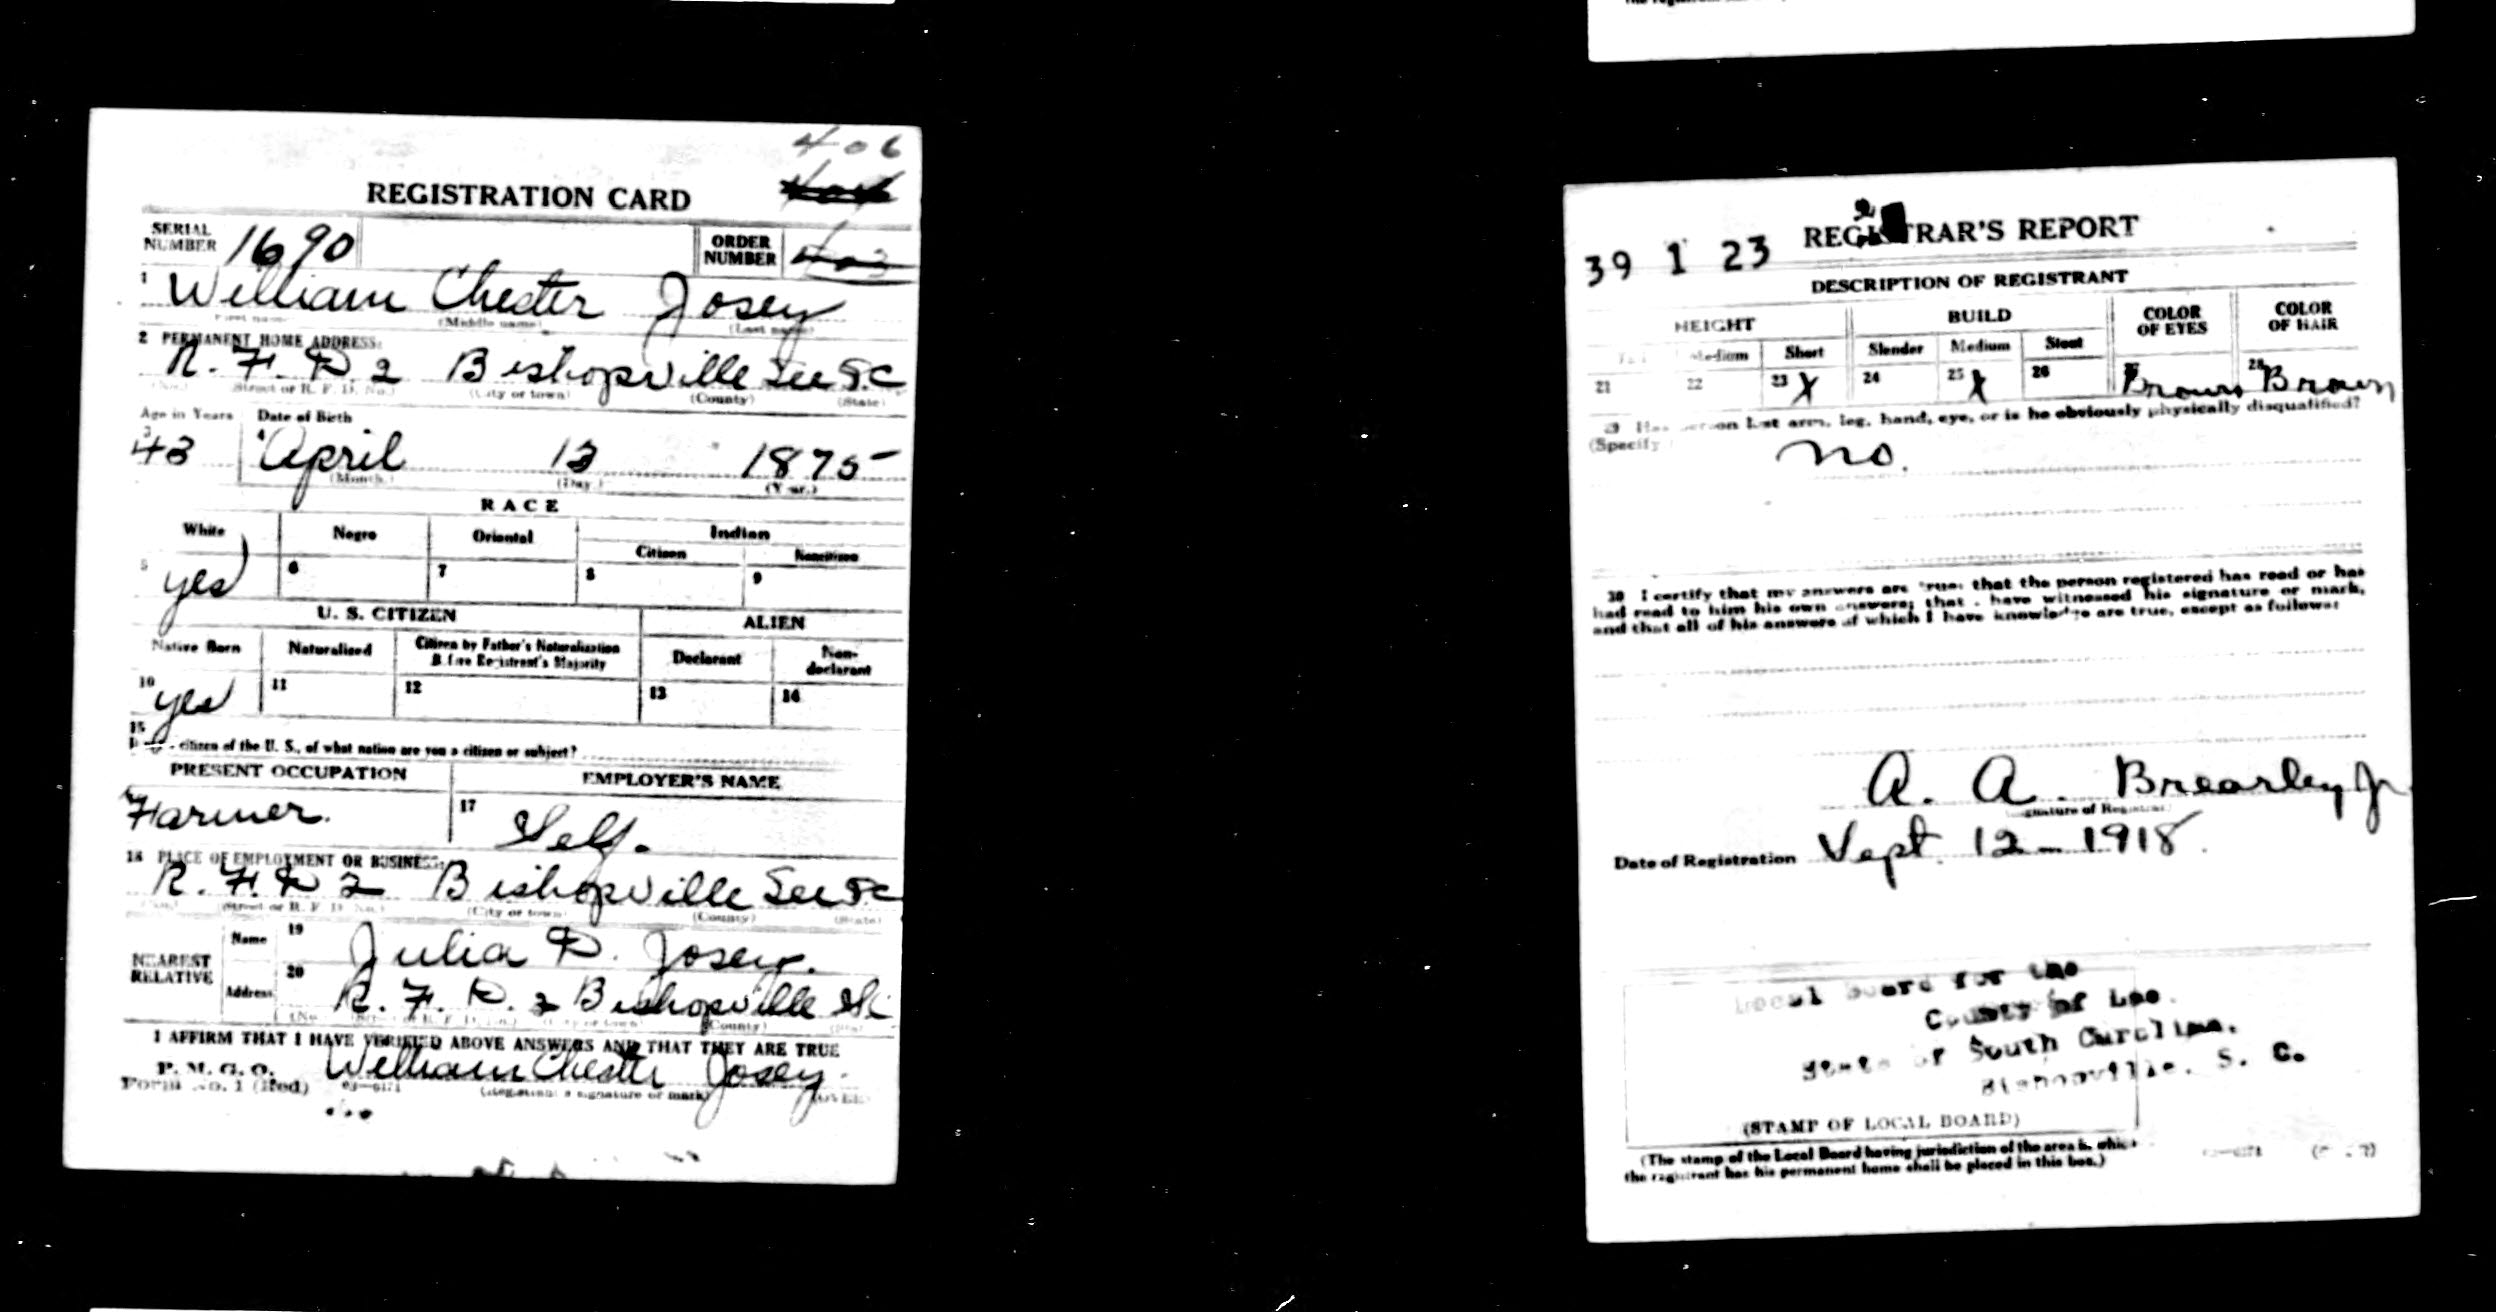 406
REGISTRATION CARD
SERIAL NUMBER 1690 ORDER NUMBER 403
1 William Chester Josey
(Middle name) (Last name)
2 PERMANENT HOME ADDRESS:
R. F. D 2 Bishopville Lee S.C
(No.) (Street or R. F. D. No.) (City or town) (County) (State)
Age in Years Date of Birth
3 43 4 April 13 1875
(Month.) (Day.) (Year.)
RACE
White Negro Oriental Indian
Citizen Noncitizen
5 yes 6 7 8 9
U. S. CITIZEN ALIEN
Native Born Naturalized Citizen by Father's Naturalization Before Registrant's Majority Declarant Non-declarant
10 yes 11 12 13 14
15
citizen of the U. S., of what nation are you a citizen or subject?
PRESENT OCCUPATION EMPLOYER'S NAME
Farmer. 17 Self.
18 PLACE OF EMPLOYMENT OR BUSINESS:
R. F. D 2 Bishopville Lee S C
(No.) (Street or R. F. D. No.) (City or town) (County) (State)
NEAREST RELATIVE Name 19 Julia D. Josey.
Address 20 R. F. D. 2 Bishopville SC
(County)
I AFFIRM THAT I HAVE VERIFIED ABOVE ANSWERS AND THAT THEY ARE TRUE
P. M. G. O.
Form No. 1 (Red) 03—6171 William Chester Josey.
(Registrant's signature or mark) (OVER)
39 1 23 REGISTRAR'S REPORT
DESCRIPTION OF REGISTRANT
HEIGHT BUILD COLOR OF EYES COLOR OF HAIR
Medium Short Slender Medium Stout
21 22 23 X 24 25 X 26 27 Brown 28 Brown
29 Has person lost arm, leg, hand, eye, or is he obviously physically disqualified?
(Specify no.
30 I certify that my answers are true; that the person registered has read or has
had read to him his own answers; that I have witnessed his signature or mark,
and that all of his answers of which I have knowledge are true, except as follows:
A. A. Brearley Jr
(Signature of Registrar)
Date of Registration Sept. 12—1918.
Local Board for the
County of Lee.
State of South Carolina.
Bishopville. S. C.
(STAMP OF LOCAL BOARD)
(The stamp of the Local Board having jurisdiction of the area in which
the registrant has his permanent home shall be placed in this box.)